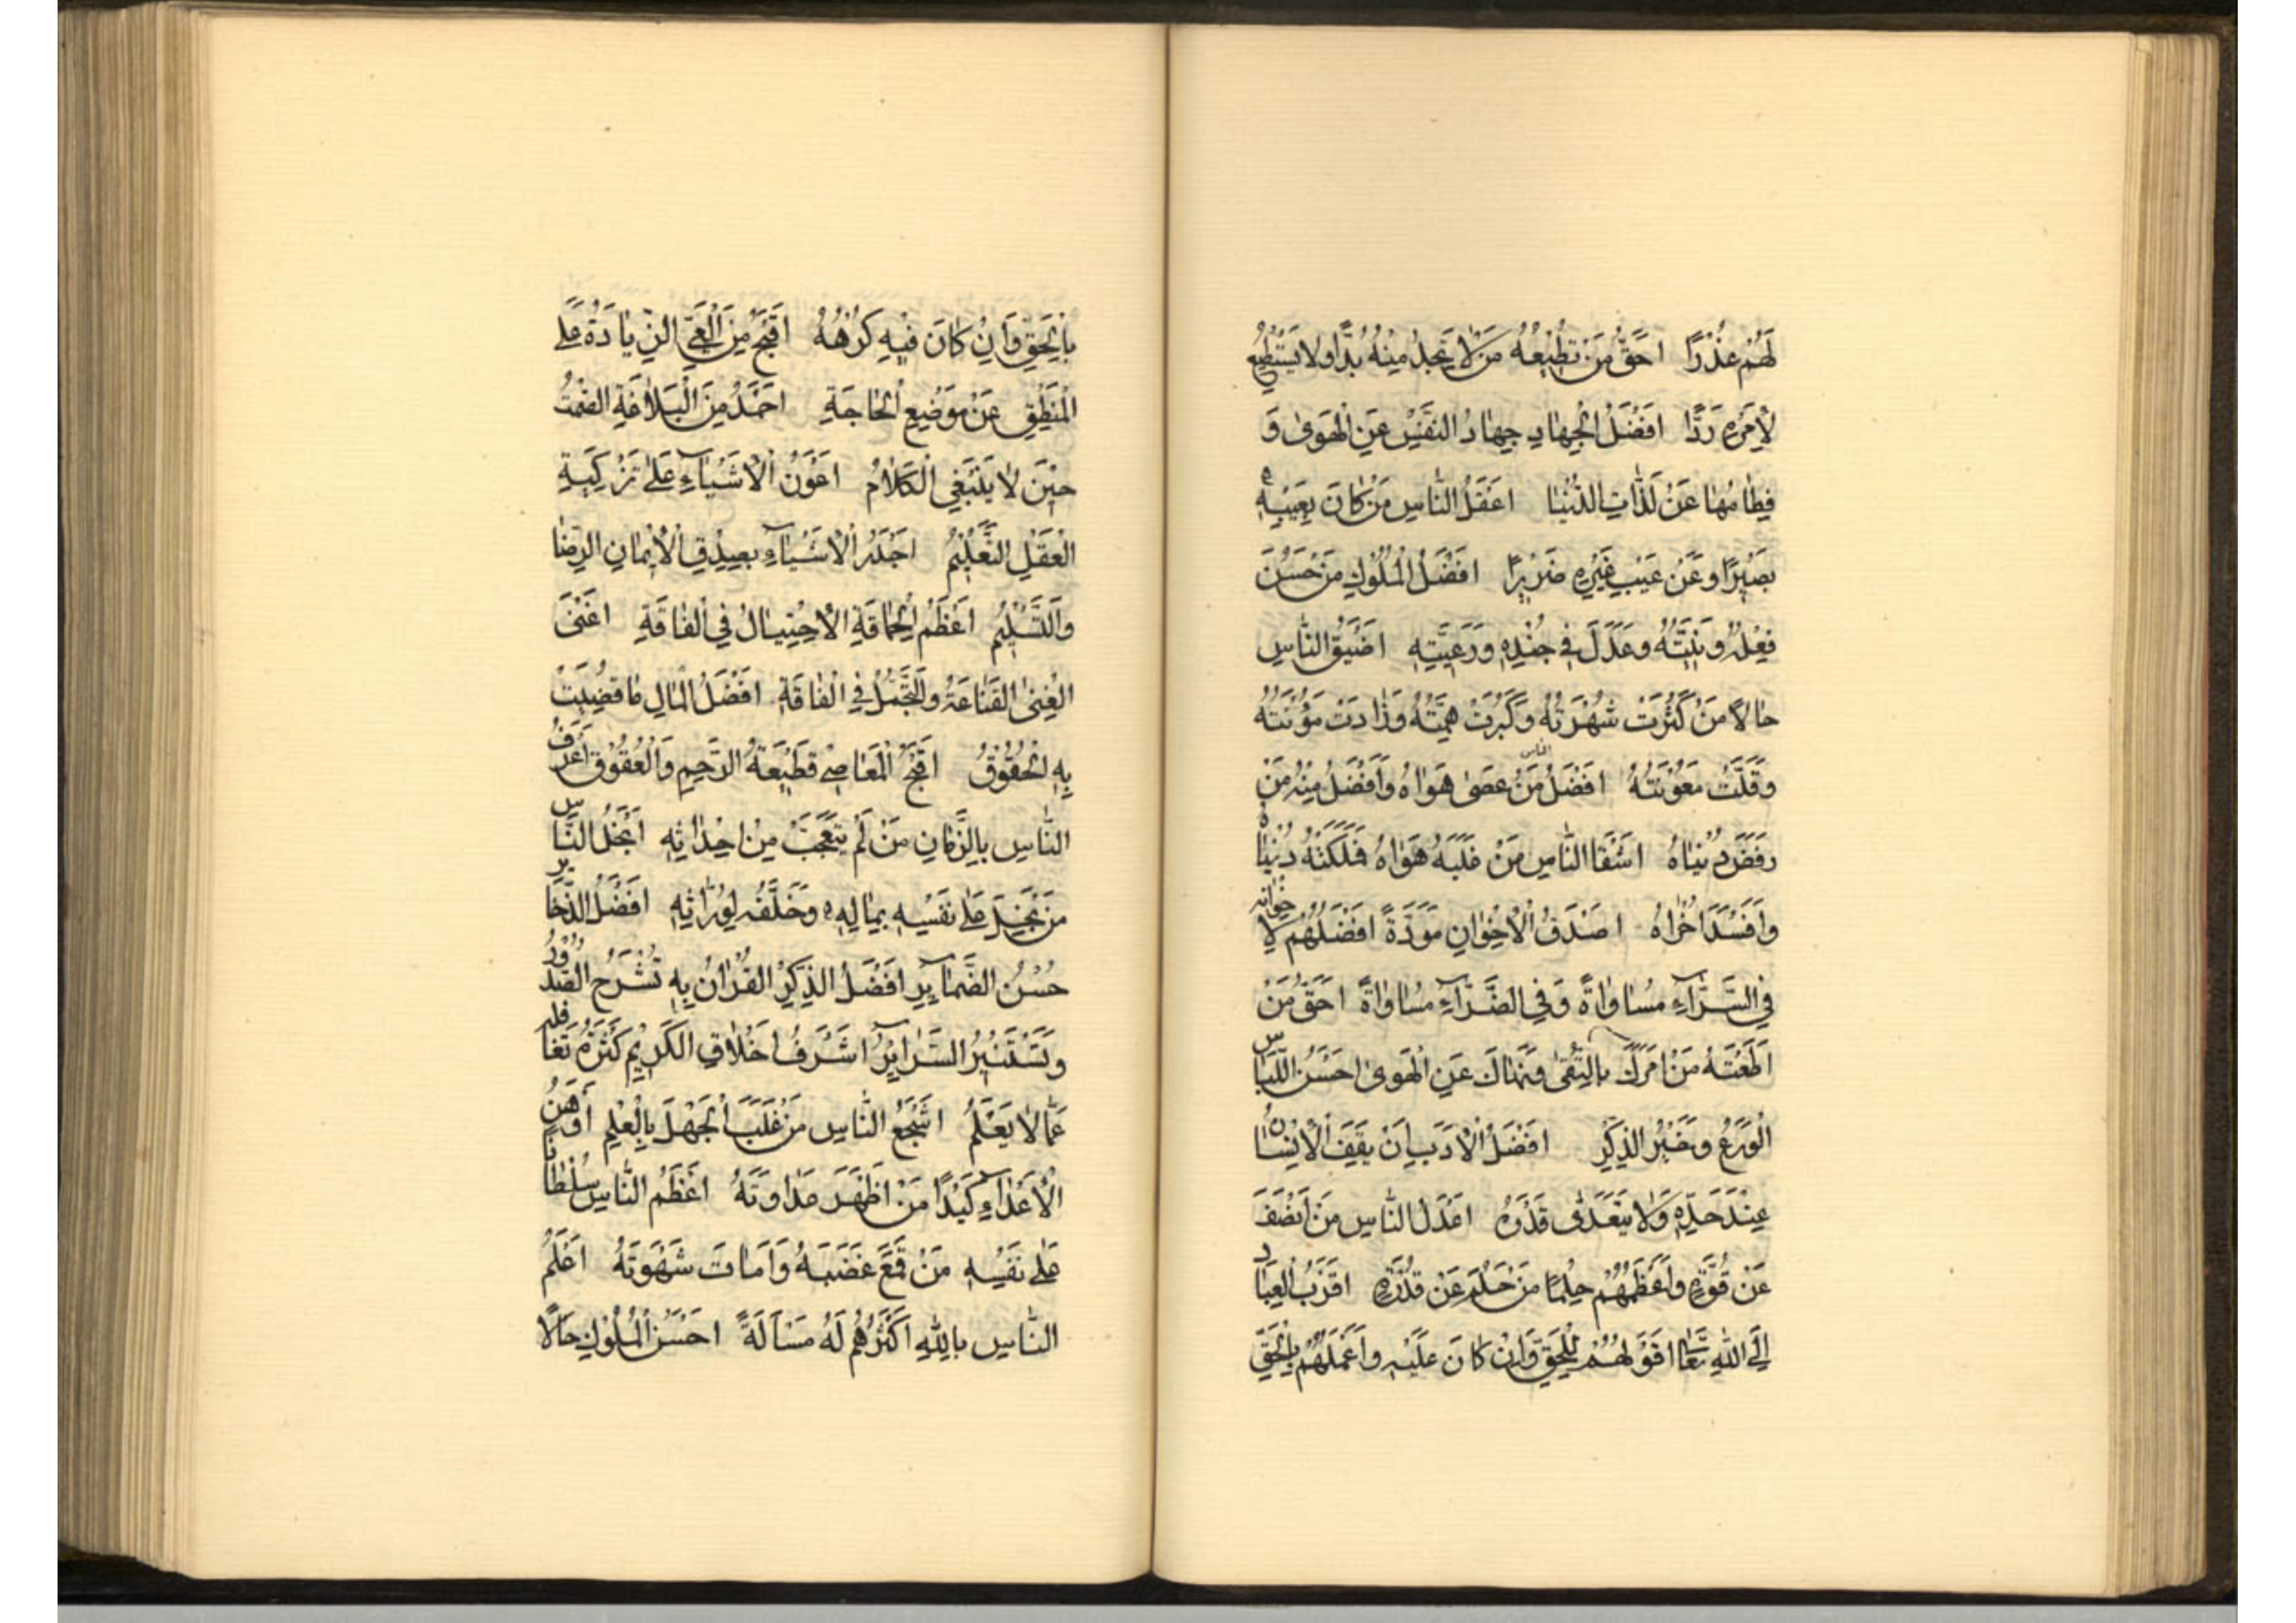 لَهُمْ عُذْرًا احَقُّ مَنْ تُطِيعُهُ مَنْ لَا تَجِدُ مِنْهُ بُدًّا وَلَا يَسْتَطِيعُ
لِأَمْرِهِ رَدًّا افْضَلُ الْجِهَادِ جِهَادُ النَّفْسِ عَنِ الْهَوىٰ وَ
فِطَامُهَا عَنْ لَذَّاتِ الدُّنْيَا اعْقَلُ النَّاسِ مَنْ كَانَ بِعَيْبِهِ
بَصِيرًا وَعَنْ عَيْبِ غَيْرِهِ ضَرِيرًا افْضَلُ الْمُلُوكِ مَنْ حَسُنَ
فِعْلُهُ وَنِيَّتُهُ وَعَدَلَ فِي جُنْدِهِ وَرَعِيَّتِهِ اضْيَقُ النَّاسِ
حَالًا مَنْ كَثُرَتْ شَهْوَتُهُ وَكَبُرَتْ هِمَّتُهُ وَزَادَتْ مَؤُنَتُهُ
وَقَلَّتْ مَعُونَتُهُ افْضَلُ الناس مَنْ عَصىٰ هَوَاهُ وَأَفْضَلُ مِنْهُ مَنْ
رَفَضَ دُنْيَاهُ اشْقَا النَّاسِ مَنْ غَلَبَهُ هَوَاهُ فَمَلَكَتْهُ دُنْيَاهُ
وَأَفْسَدَ اُخْرَاهُ اصْدَقُ الْاخْوَانِ مَوَدَّةً افْضَلُهُمْ لِاخْوَانِهِ
فِي السَّرَّاءِ مُسَاوَاةً وَفِي الضَّرَّاءِ مُسَاوَاةً احَقُّ مَنْ
اَطَعْتَهُ مَنْ اَمَرَكَ بِالتُّقىٰ وَنَهَاكَ عَنِ الْهَوىٰ احْسَنُ اللِّبَاسِ
الْوَرَعُ وَخَيْرُ الذِّكْرِ افْضَلُ الْاَدَبِ اَنْ يَقِفَ الْاِنْسَانُ
عِنْدَ حَدِّهِ وَلَا يَتَعَدّىٰ قَدْرَهُ اعْدَلُ النَّاسِ مَنْ اَنْصَفَ
عَنْ قُوَّةٍ وَأَعْظَمُهُمْ حِلْمًا مَنْ حَلُمَ عَنْ قُدْرَةٍ اقْرَبُ الْعِبَادِ
اِلَى اللهِ تَعَالىٰ اقْوَلُهُمْ لِلْحَقِّ وَاِنْ كَانَ عَلَيْهِ وَاَعْمَلُهُمْ بِالْحَقِّ
بِالْحَقِّ وَاِنْ كَانَ فِيهِ كُرْهُهُ اقْبَحُ مِنَ الْعَيِّ الزِّيَادَةُ عَلَى
الْمَنْطِقِ عَنْ مَوْضِعِ الْحَاجَةِ احْمَدُ مِنَ الْبَلَاغَةِ الصَّمْتُ
حِينَ لَا يَنْبَغِي الْكَلَامُ اعْوَنُ الْاَشْيَاءِ عَلىٰ تَزْكِيَةِ
الْعَقْلِ التَّعْلِيمُ اجْدَرُ الْاَشْيَاءِ بِصِدْقِ الْاِيمَانِ الرِّضَا
وَالتَّسْلِيمُ اعْظَمُ الْحَمَاقَةِ الْاِخْتِيَالُ فِي الْفَاقَةِ اغْنَى
الْغِنىٰ الْقَنَاعَةُ وَالتَّجَمُّلُ فِي الْفَاقَةِ افْضَلُ الْمَالِ مَا قُضِيَتْ
بِهِ الْحُقُوقُ اقْبَحُ الْمَعَاصِي قَطِيعَةُ الرَّحِمِ وَالْعُقُوقُ اَعْرَفُ
النَّاسِ بِالزَّمَانِ مَنْ لَمْ يَتَعَجَّبْ مِنْ اَحْدَاثِهِ ابْخَلُ النَّاسِ
مَنْ بَخِلَ عَلىٰ نَفْسِهِ بِمَالِهِ وَخَلَّفَهُ لِوُرَّاثِهِ افْضَلُ الذَّخَايِرِ
حُسْنُ الضَّمَآيِرِ افْضَلُ الذِّكْرِ الْقُرْاٰنُ بِهِ تُشْرَحُ الصُّدُورُ
وَتَسْتَنِيرُ السَّرَآيِرُ اشْرَفُ اَخْلَاقِ الْكَرِيمِ كَثْرَةُ تَغَافُلِهِ
عَمَّا لَا يَعْلَمُ اشْجَعُ النَّاسِ مَنْ غَلَبَ الْجَهْلَ بِالْعِلْمِ اَوْهَنُ
الْاَعْدَاءِ كَيْدًا مَنْ اَظْهَرَ عَدَاوَتَهُ اعْظَمُ النَّاسِ سُلْطَانًا
عَلىٰ نَفْسِهِ مَنْ قَمَعَ غَضَبَهُ وَاَمَاتَ شَهْوَتَهُ اعْلَمُ
النَّاسِ بِاللهِ اَكْثَرُهُمْ لَهُ مَسْأَلَةً احْسَنُ الْمُلُوكِ حَالًا